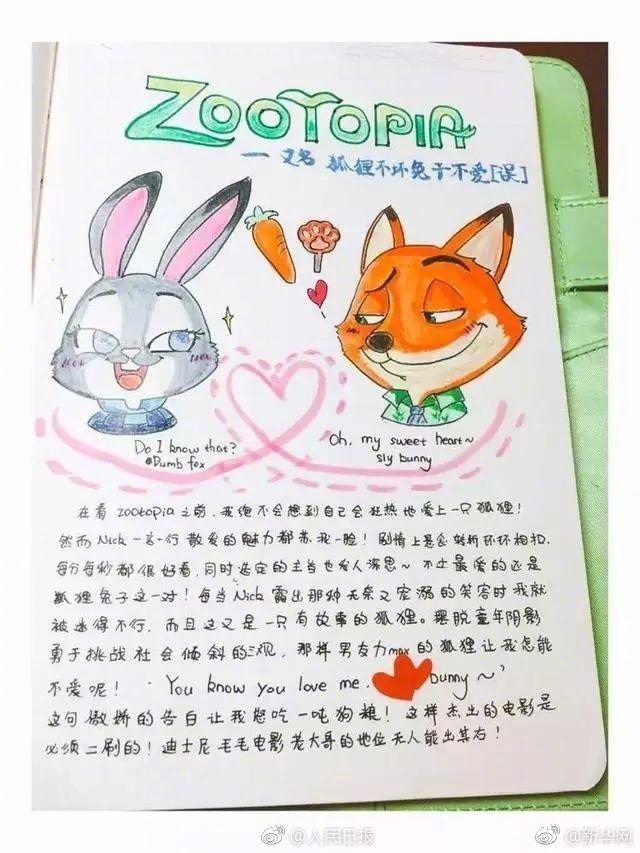 ZOOTOPIA
一 又名 狐狸不坏兔子不爱[误]
Do I know that?
Dumb fox
Oh, my sweet heart~
sly bunny
在看 zootopia 之前,我绝不会想到自己会狂热地爱上一只狐狸!
然而Nick一言一行散发的魅力都苏我一脸!剧情上悬念转折环环相扣,
每分每秒都很好看,同时选定的主旨也发人深思~不过最爱的还是
狐狸兔子这一对!每当Nick露出那种无奈又宠溺的笑容时我就
被迷得不行,而且这又是一只有故事的狐狸。摆脱童年阴影
勇于挑战社会倾斜的三观,那样男友力max的狐狸让我怎能
不爱呢! "You know you love me, bunny~"
这句傲娇的告白让我想吃一吨狗粮!这样杰出的电影是
必须二刷的!迪士尼毛毛电影老大哥的地位无人能出其右!
@人民日报
@新华网